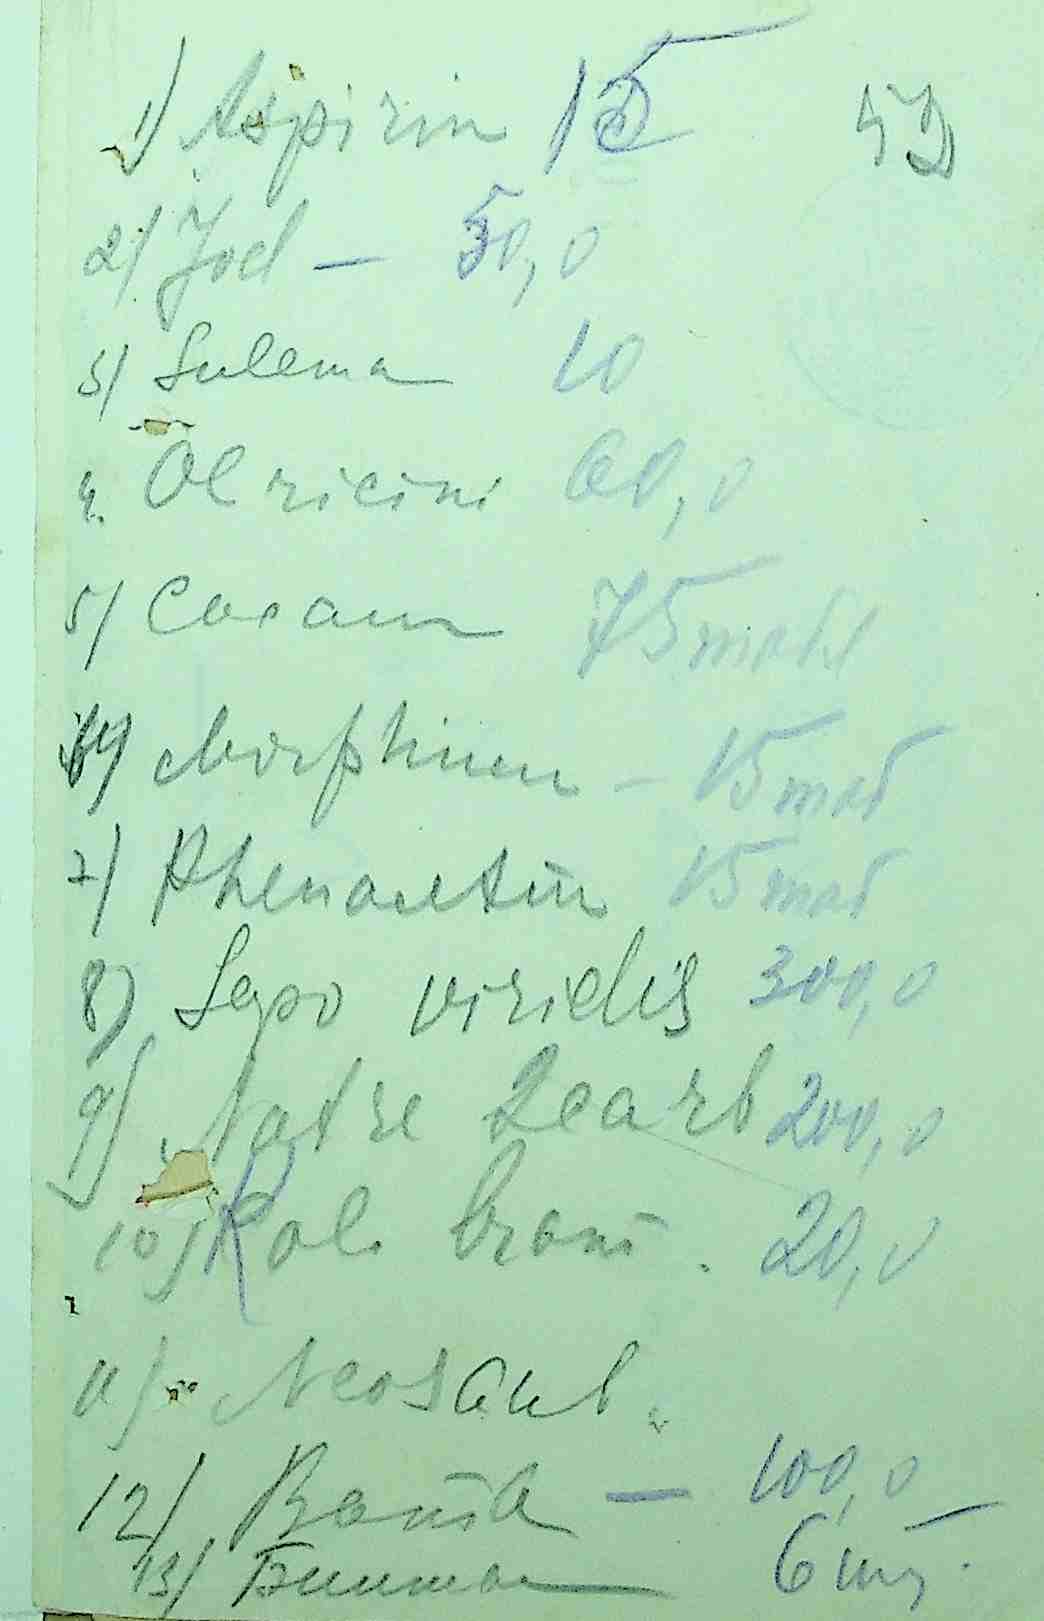 1) Aspirin 15 52
2) Jod — 50,0
3) Sulema 10
4. Ol ricini 60,0
5) Cocain 75 табл
6) Morphium — 15 таб
7) Phenacetin 15 таб
8) Sapo viridis 300,0
9) Natre 2carb 200,0
10) Kali brom. 20,0
11) Neosalv.
12) Вата — 100,0
13) Бинты 6 шт.